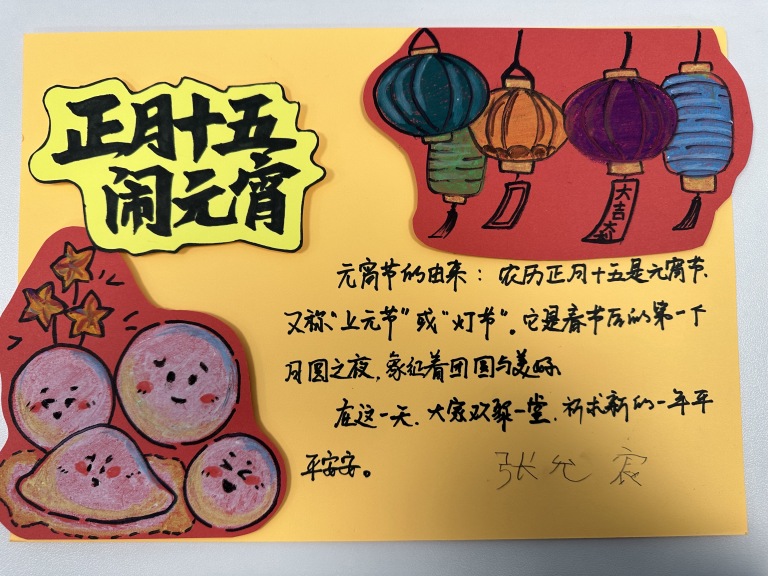 正月十五
闹元宵
大吉大
元宵节的由来：农历正月十五是元宵节.
又称“上元节”或“灯节”.它是春节后的第一个
月圆之夜,象征着团圆与美好.
在这一天.大家欢聚一堂.祈求新的一年平
平安安。
张允宸